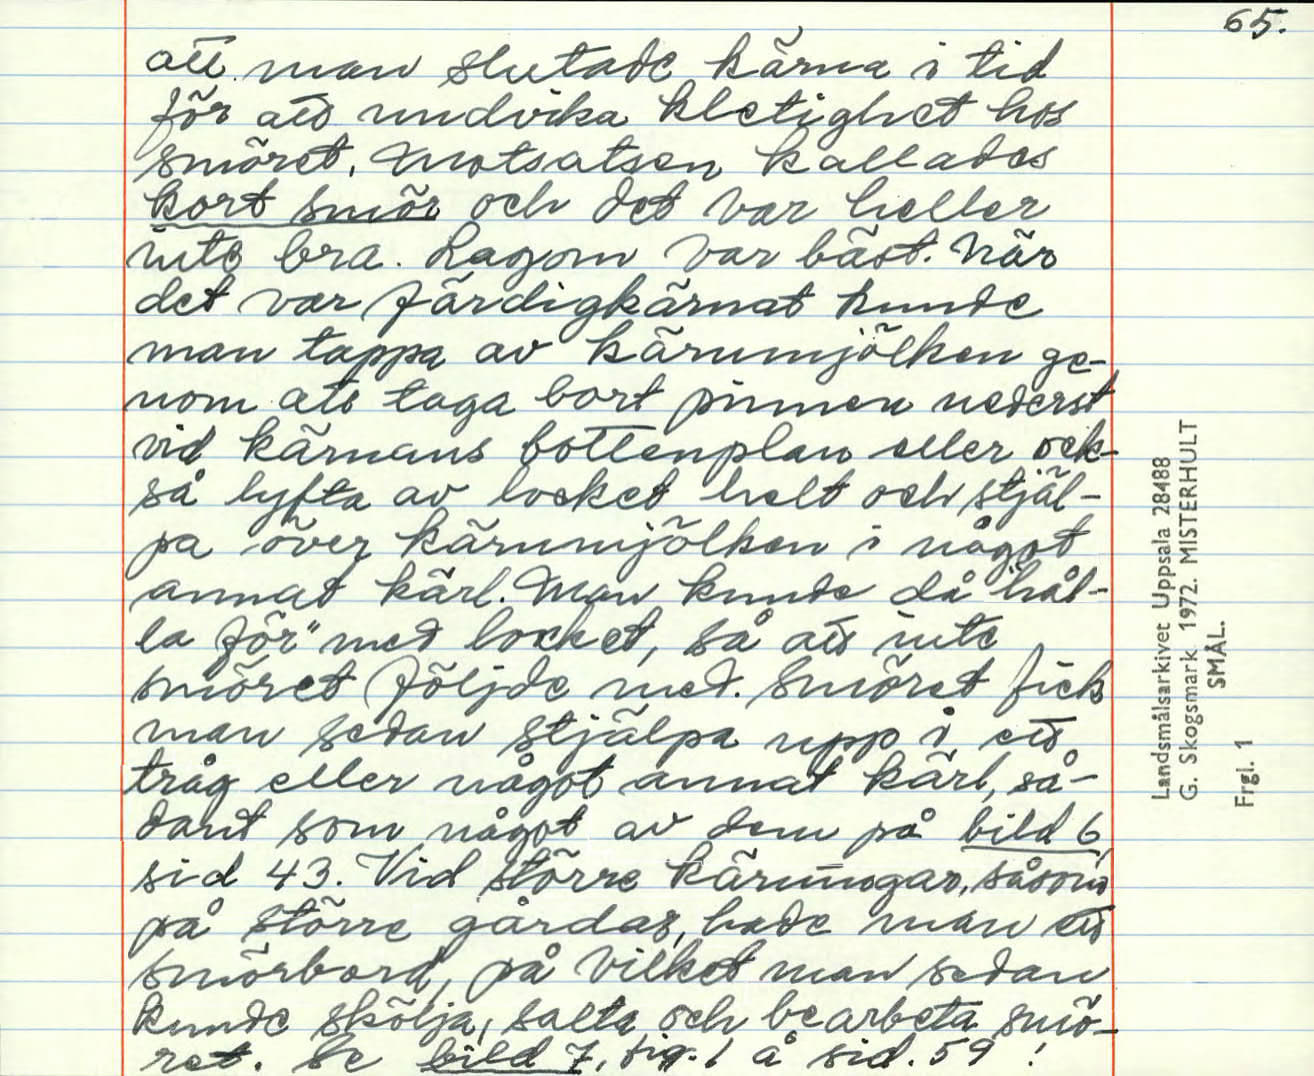 65.
att man slutade kärna i tid
för att undvika kletighet hos
smöret. Motsatsen kallades
kort smör och det var heller
inte bra. Lagom var bäst. När
det var färdigkärnat kunde
man tappa av kärnmjölken ge-
nom att taga bort pinnen nederst
vid kärnans bottenplan eller ock-
så lyfta av locket helt och stjäl-
pa över kärnmjölken i något
annat kärl. Man kunde då "hål-
la för" med locket, så att inte
smöret följde med. Smöret fick
man sedan stjälpa upp i ett
tråg eller något annat kärl, så-
dant som något av dem på bild 6,
sid 43. Vid större kärningar, såsom
på större gårdar, hade man ett
smörbord, på vilket man sedan
kunde skölja, salta och bearbeta smö-
ret. Se bild 7, fig. 1 å sid. 59!
Landsmålsarkivet Uppsala 28488
G. Skogsmark 1972. MISTERHULT
SMÅL.
Frgl. 1